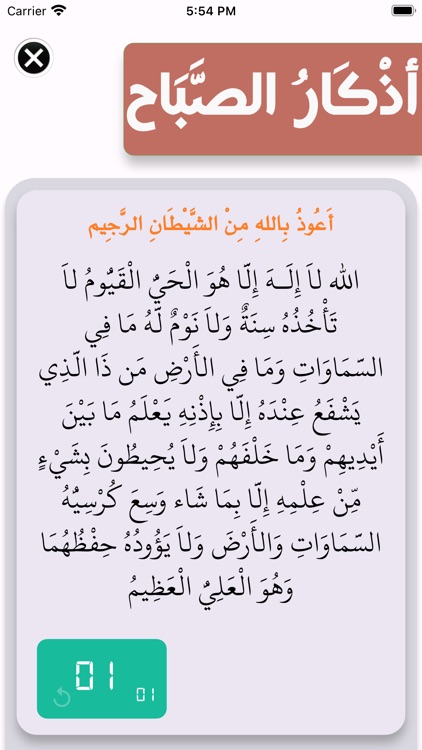 Carrier 5:54 PM
أذْكَارُ الصَّبَاح
أَعُوذُ بِاللهِ مِنْ الشَّيْطَانِ الرَّجِيمِ
الله لاَ إِلَـهَ إِلَّا هُوَ الْحَيُّ الْقَيُّومُ لاَ
تَأْخُذُهُ سِنَةٌ وَلاَ نَوْمٌ لَّهُ مَا فِي
السَّمَاوَاتِ وَمَا فِي الأَرْضِ مَن ذَا الَّذِي
يَشْفَعُ عِنْدَهُ إِلَّا بِإِذْنِهِ يَعْلَمُ مَا بَيْنَ
أَيْدِيهِمْ وَمَا خَلْفَهُمْ وَلاَ يُحِيطُونَ بِشَيْءٍ
مِّنْ عِلْمِهِ إِلَّا بِمَا شَاء وَسِعَ كُرْسِيُّهُ
السَّمَاوَاتِ وَالأَرْضَ وَلاَ يَؤُودُهُ حِفْظُهُمَا
وَهُوَ الْعَلِيُّ الْعَظِيمُ
01
01